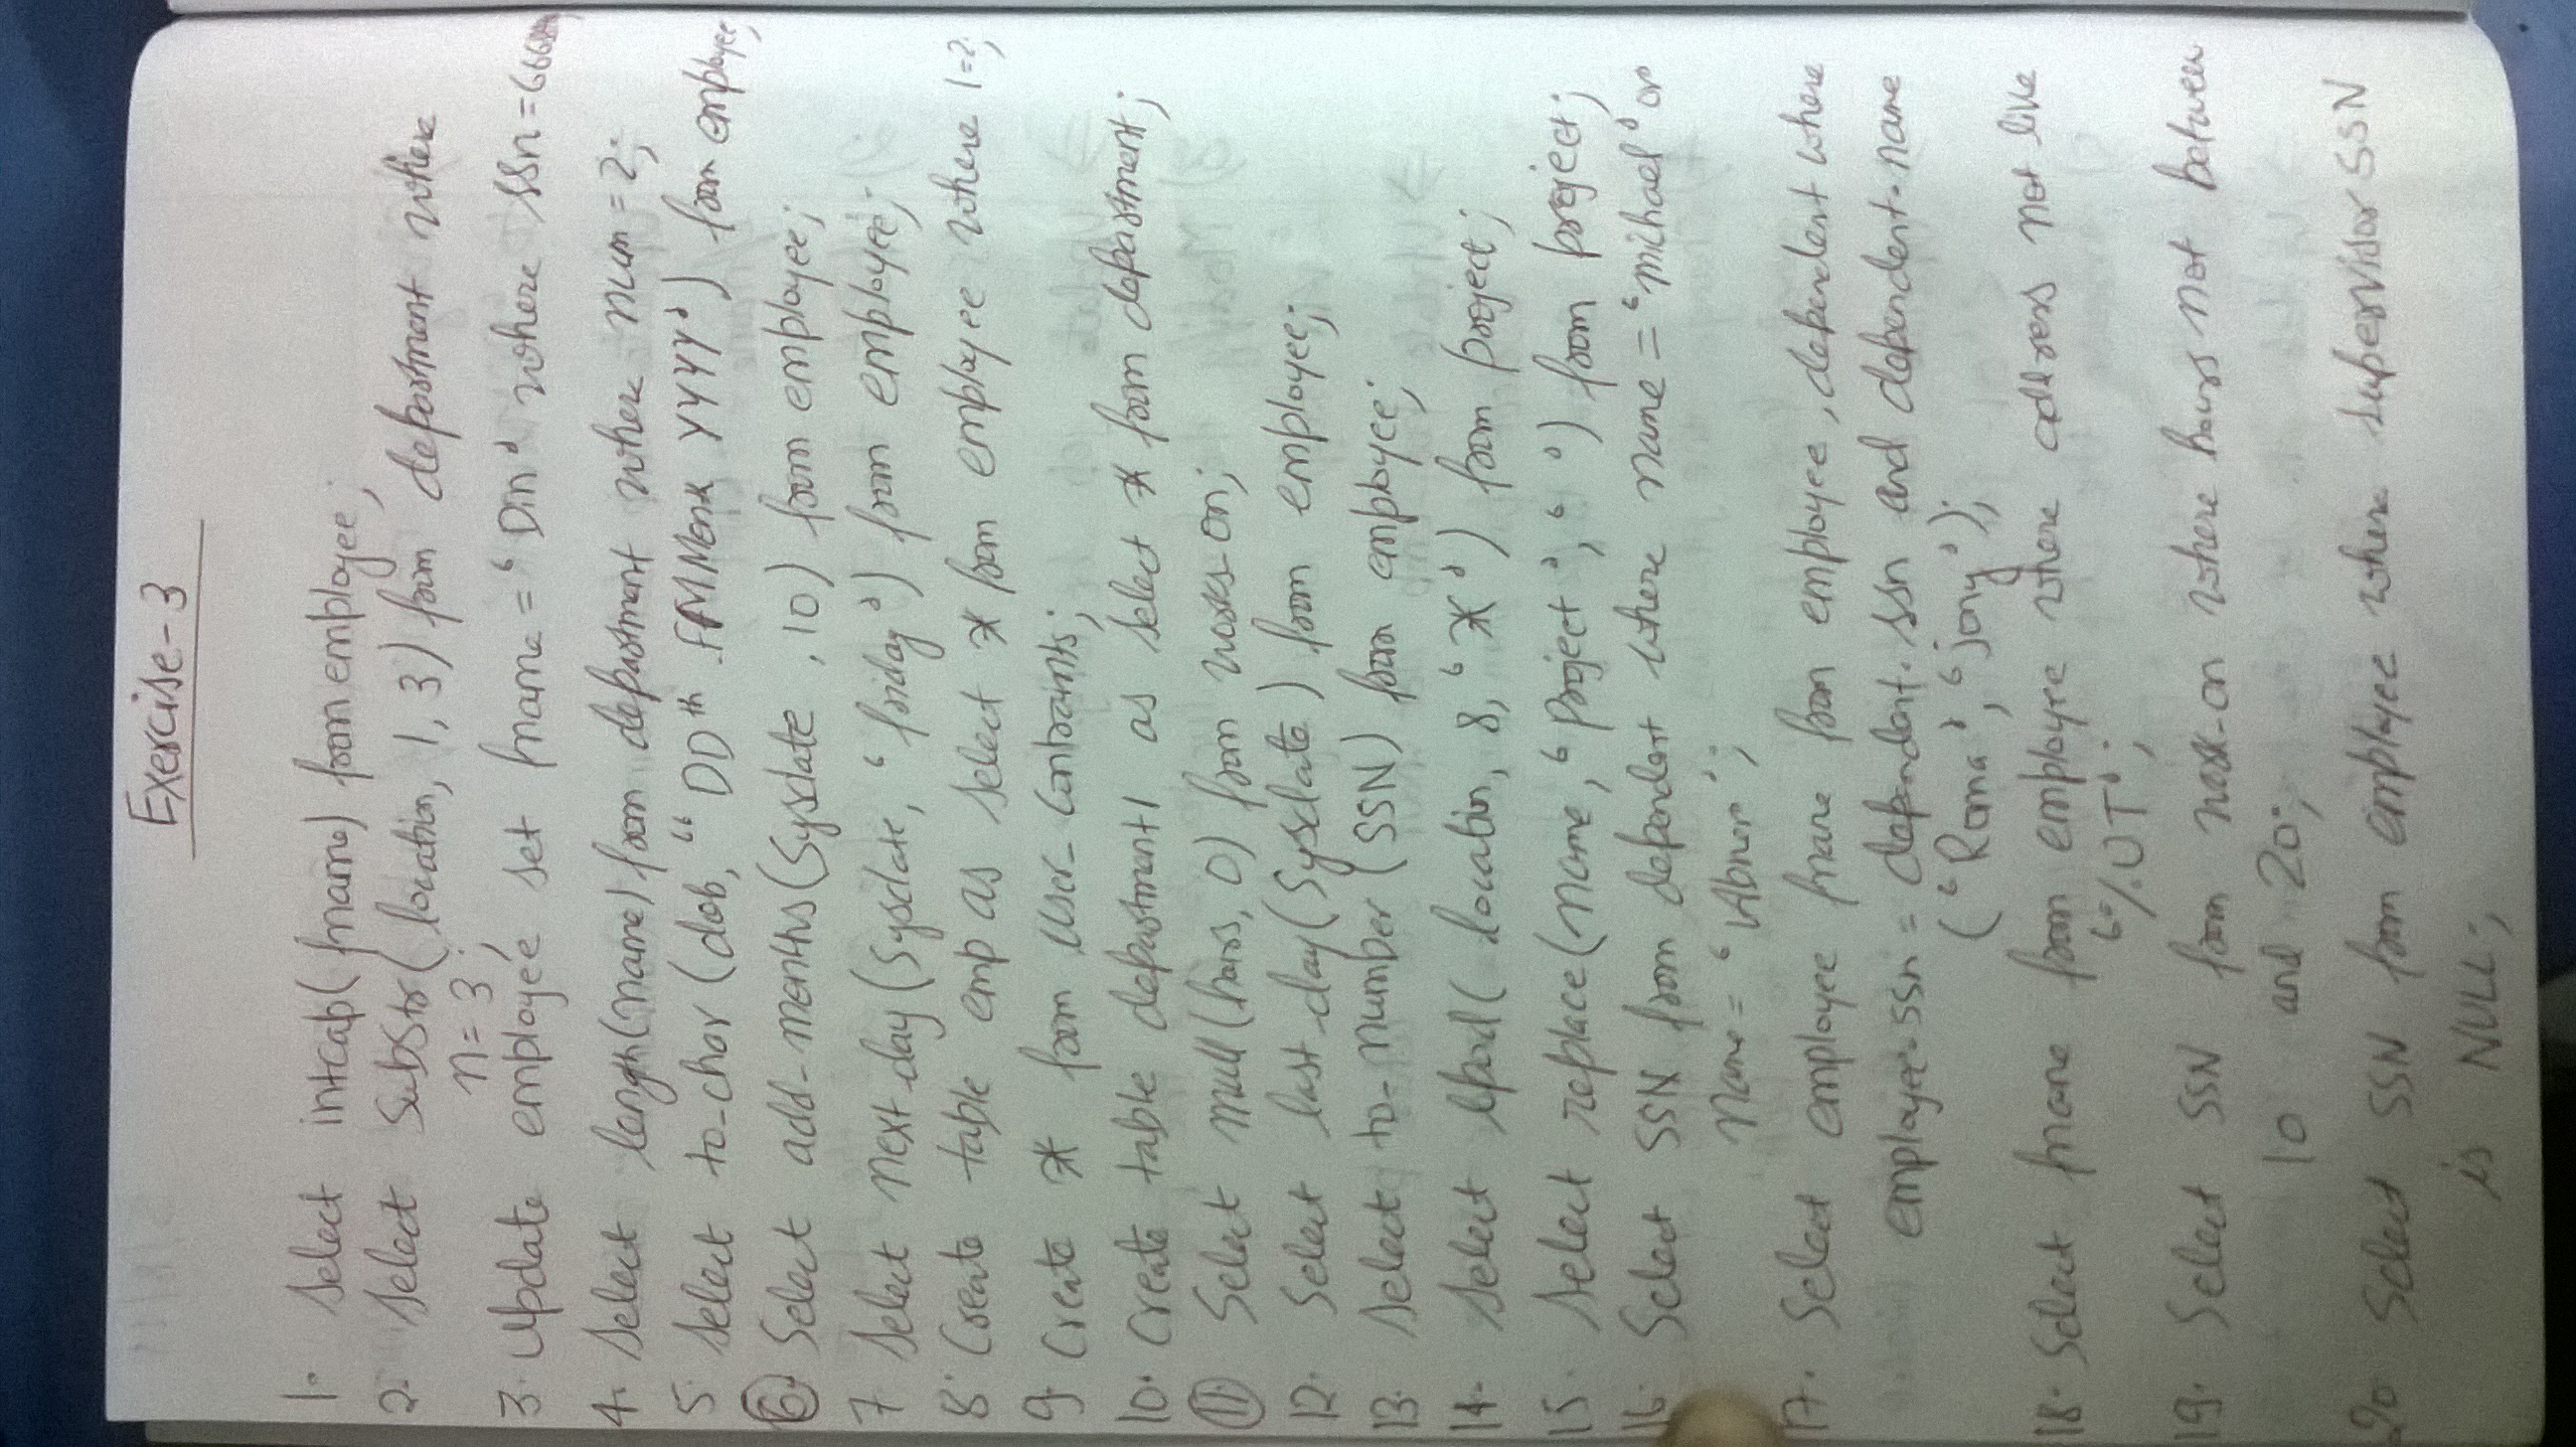 Exercise-3
1. Select intcap(fname) from employee;
2. Select Substr(location, 1, 3) from department where
n=3;
3. Update employee set fname = 'Din' where ssn = 666
4. Select length(name) from department where num = 2;
5. Select to_char(dob, "DDth FMMonth YYYY') from employee;
6. Select add-months(Sysdate, 10) from employee;
7 Select next-day(Sysdate, 'friday') from employee;
8. Create table emp as select * from employee where 1=2;
9. Create * from user-contraints;
10. Create table department1 as select * from department;
11. Select null(hours, 0) from works-on;
12. Select last-day(Sysdate) from employee;
13. Select to-number(SSN) from employee;
14. Select lpad(location, 8, '*') from project;
15. Select replace(name, 'project', ' ') from project;
16. Select SSN from dependent where name = 'michael' or
name = 'Abner';
17. Select employee fname from employee, dependent where
employee.ssn = dependent.ssn and dependent.name
('Roma', 'jony');
18. Select fname from employee where address not like
'%UT';
19. Select SSN from work-on where hours not between
10 and 20;
20 Select SSN from employee where supervisor SSN
is NULL;